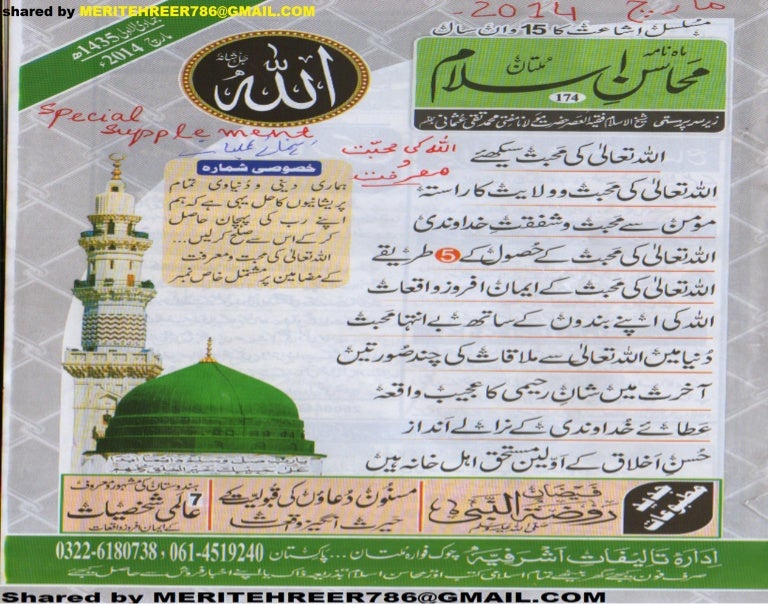 shared by MERITEHREER786@GMAIL.COM
مارچ 2014-
مسلسل اشاعت کا 15 واں سال
1435ھ
مارچ 2014ء
الله
ماہ نامہ
محاسنِ اسلام
ملتان
174
زیر سرپرستی شیخ الاسلام فقیہ العصر حضرت مولانا مفتی محمد تقی عثمانی
Special
Supplement
اللہ کی محبت
و
معرفت
خصوصی شمارہ
ہماری دینی و دنیاوی تمام
پریشانیوں کا حل یہی ہے کہ ہم
اپنے رب کی پہچان حاصل
کر کے اس سے صلح کرلیں...
اللہ تعالیٰ کی محبت و معرفت
کے مضامین پر مشتمل خاص نمبر
اللہ تعالیٰ کی محبت سیکھئے
اللہ تعالیٰ کی محبت و ولایت کا راستہ
مؤمن سے محبت و شفقتِ خداوندی
اللہ تعالیٰ کی محبت کے حصول کے 5 طریقے
اللہ تعالیٰ کی محبت کے ایمان افروز واقعات
اللہ کی اپنے بندوں کے ساتھ بے انتہا محبت
دنیا میں اللہ تعالیٰ سے ملاقات کی چند صورتیں
آخرت میں شانِ رحیمی کا عجیب واقعہ
عطائے خداوندی کے نرالے انداز
حسنِ اخلاق کے اولین مستحق اہل خانہ ہیں
جدید
مطبوعات
فیضانِ
روضۃ النبی
صلی اللہ علیہ وسلم
مسنون دعاؤں کی قبولیت کے
حیرت انگیز واقعات
ہندوستان کی مشہور و معروف
7 عالمی شخصیات
کے ایمان افروز واقعات
ادارہ تالیفات اشرفیہ چوک فوارہ ملتان ... پاکستان 061-4519240 , 0322-6180738
صرف فون کیجئے گھر بیٹھے تمام اسلامی کتب اور محاسن اسلام بذریعہ ڈاک یا اپنے اخبار فروش سے حاصل کیجئے
Shared by MERITEHREER786@GMAIL.COM